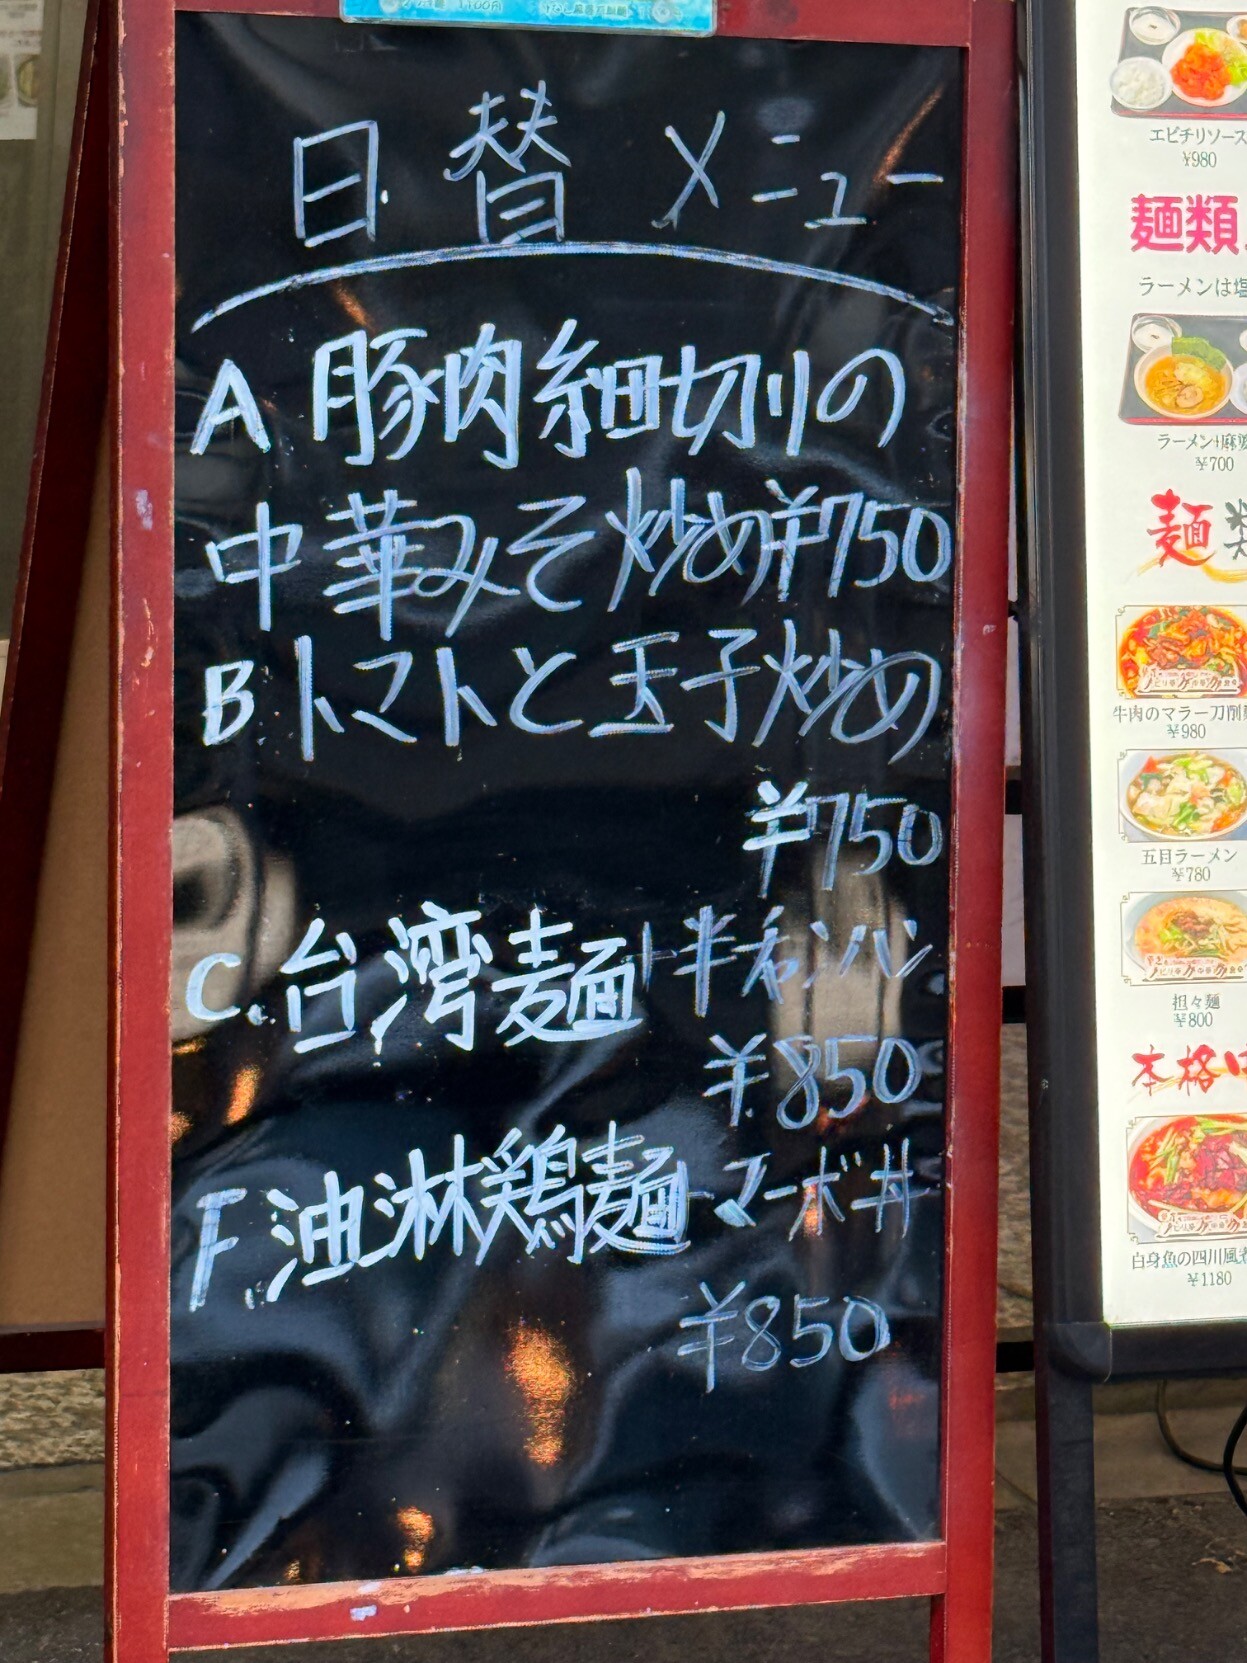 日替メニュー
A 豚肉細切りの
中華みそ炒め¥750
B トマトと玉子炒め
¥750
C. 台湾麺+半チャンハン
¥850
F. 油淋鶏麺+マーボ丼
¥850
エビチリソース
¥980
麺類
ラーメンは塩
ラーメン+麻婆
¥700
麺類
牛肉のマラー刀削
¥980
五目ラーメン
¥780
担々麺
¥800
本格
白身魚の四川風煮
¥1180